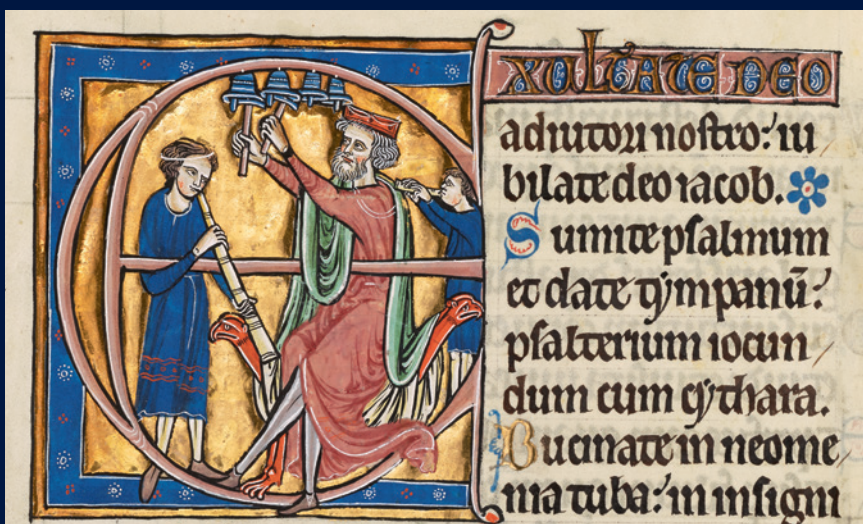 EXULTATE DEO
adiutori nostro: iu
bilate deo iacob.
Sumite psalmum
et date tympanū:
psalterium iocun
dum cum cythara.
Bucinate in neome
nia tuba: in insigni